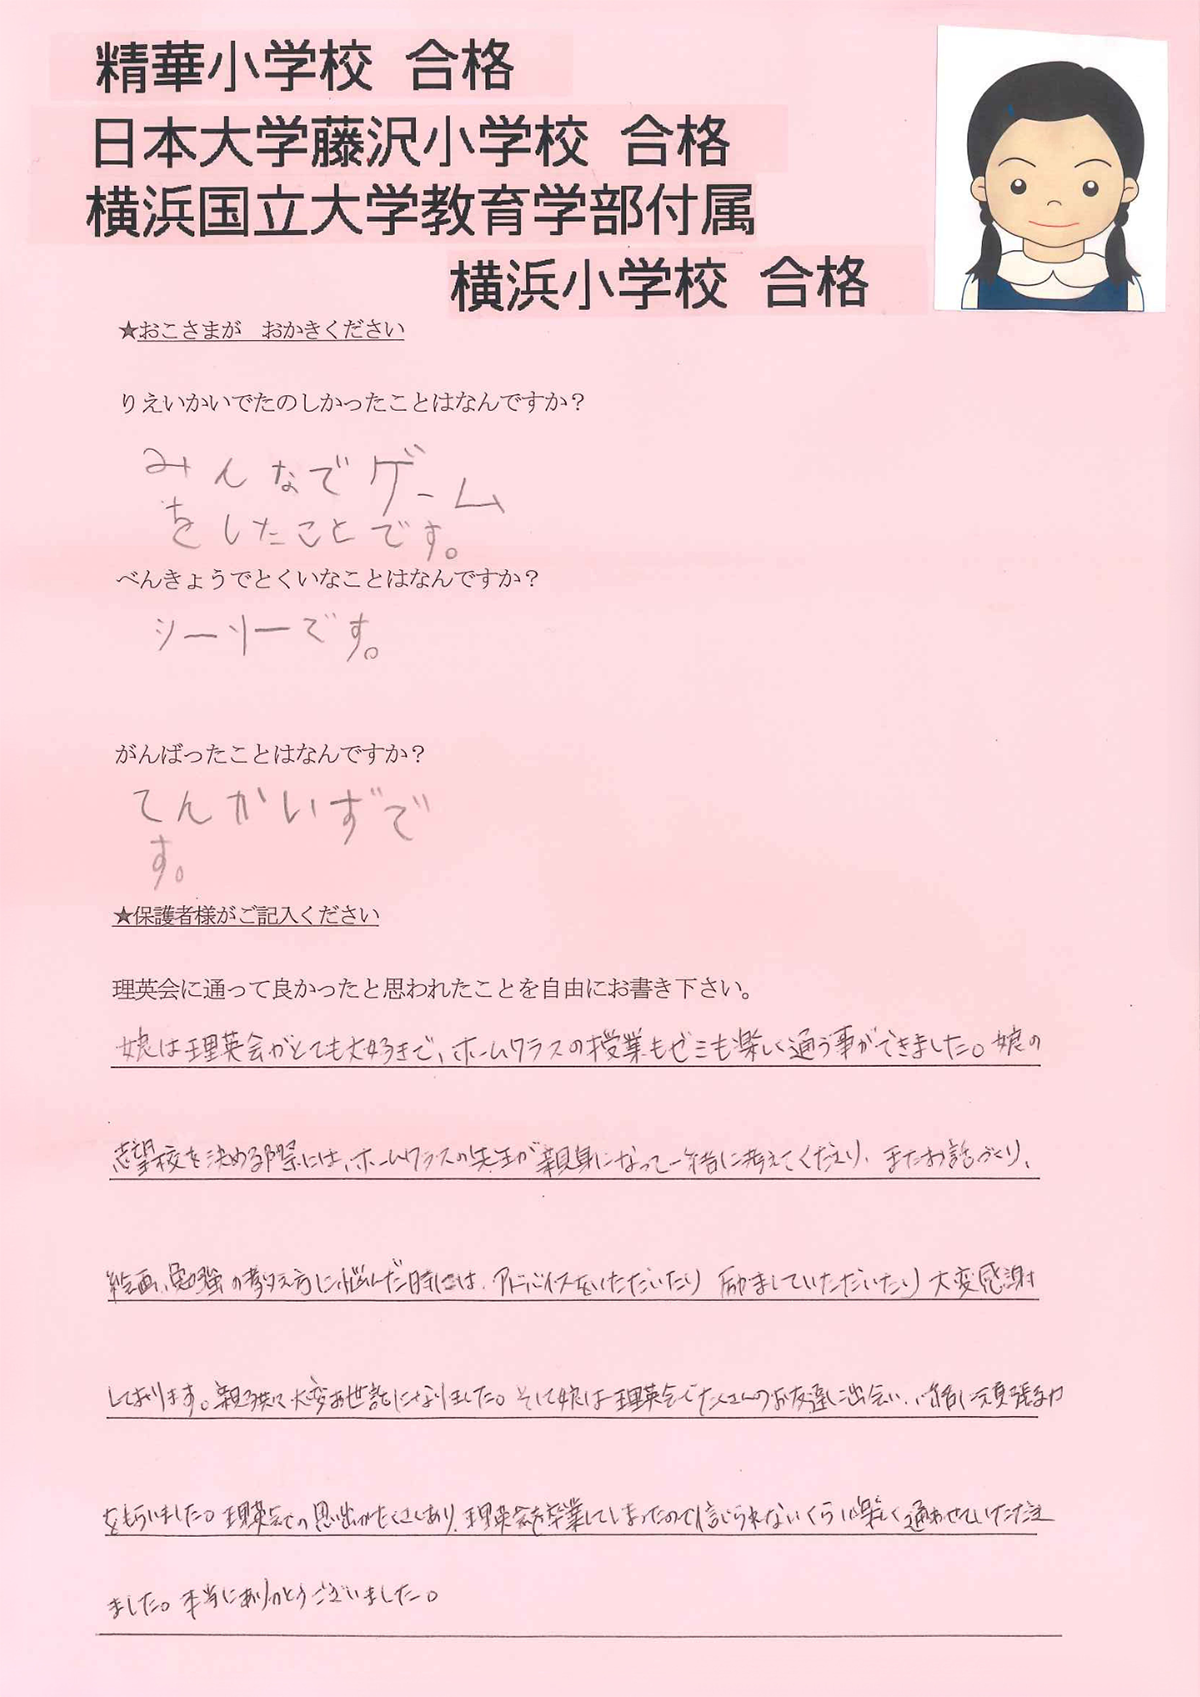 精華小学校 合格
日本大学藤沢小学校 合格
横浜国立大学教育学部付属
横浜小学校 合格
★おこさまが　おかきください
りえいかいでたのしかったことはなんですか？
みんなでゲーム
をしたことです。
べんきょうでとくいなことはなんですか？
シーソーです。
がんばったことはなんですか？
てんかいずで
す。
★保護者様がご記入ください
理英会に通って良かったと思われたことを自由にお書き下さい。
娘は理英会がとても大好きで、ホームクラスの授業もゼミも楽しく通う事ができました。娘の
志望校を決める際には、ホームクラスの先生が親身になって一緒に考えてくださり、またお話づくり、
絵画、勉強の教え方に悩んだ時には、アドバイスをいただいたり励ましていただいたり大変感謝
しております。親子共に大変お世話になりました。そして娘は理英会でたくさんのお友達に出会い、一緒に頑張る力
をもらいました。理英会での思い出がたくさんあり、理英会を卒業してしまったので信じられないくらい楽しく通わせていただき
ました。本当にありがとうございました。